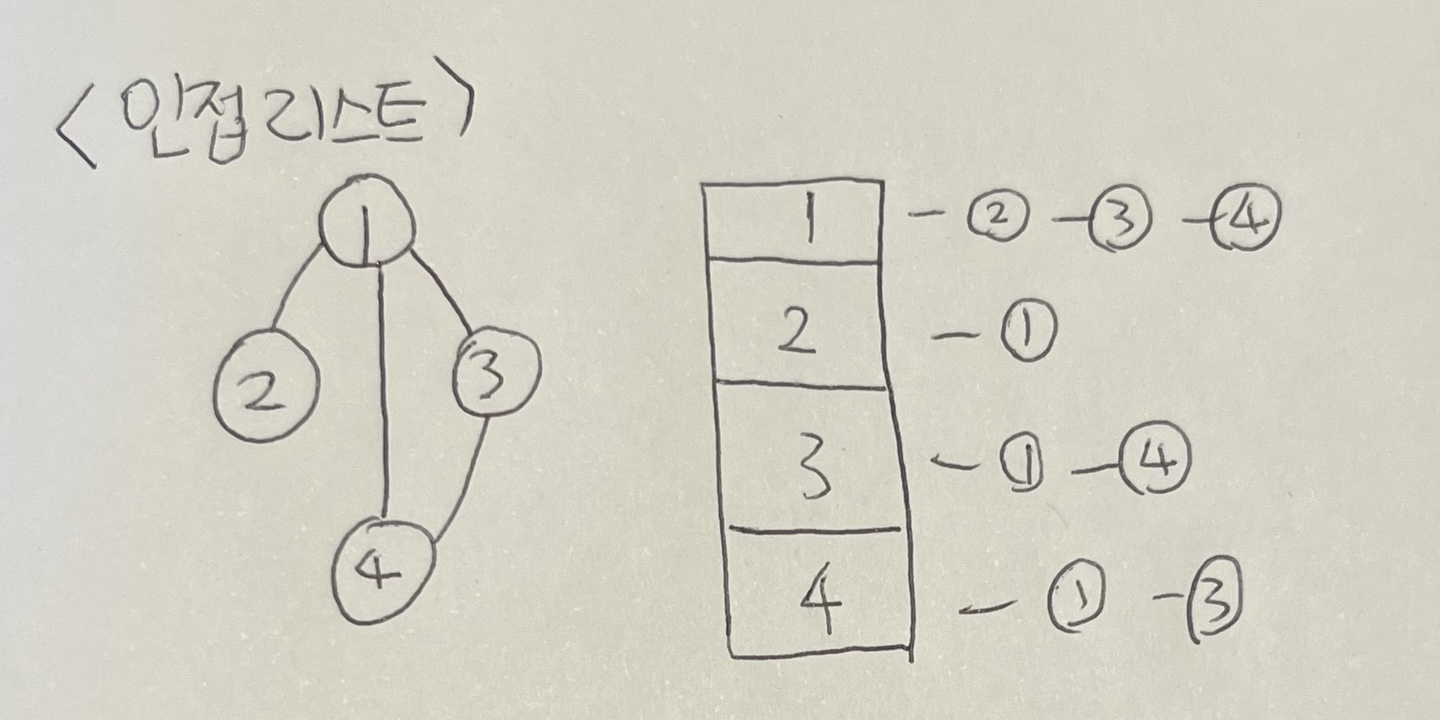 <인접리스트>
1
2
3
4
1 - ② - ③ - ④
2 - ①
3 - ① - ④
4 - ① - ③